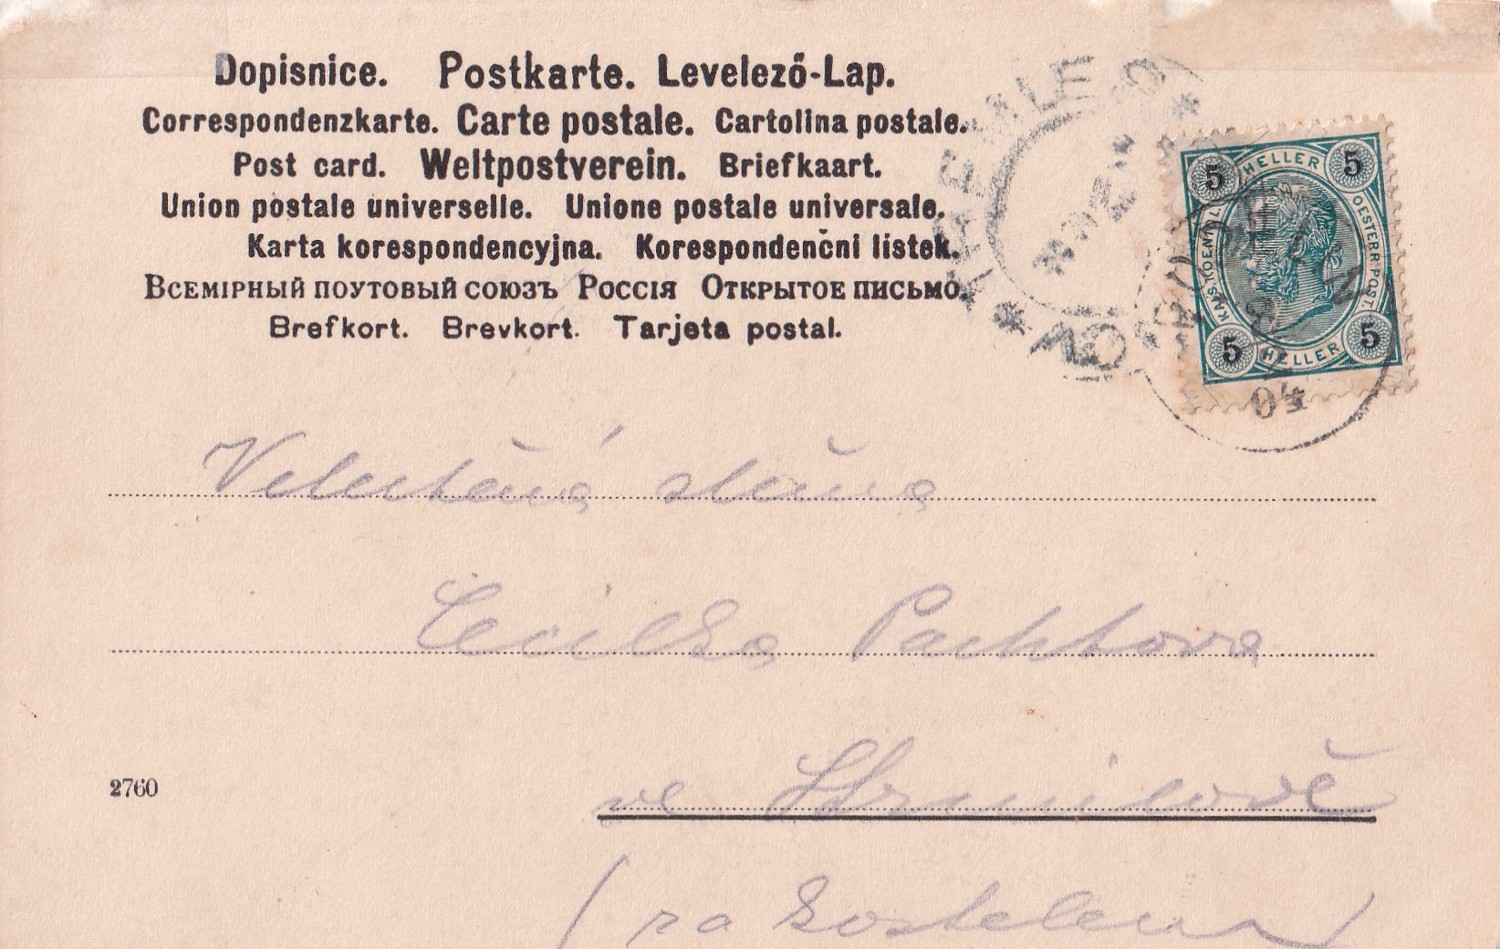 Dopisnice. Postkarte. Levelező-Lap.
Correspondenzkarte. Carte postale. Cartolina postale.
Post card. Weltpostverein. Briefkaart.
Union postale universelle. Unione postale universale.
Karta korespondencyjna. Korespondenčni listek.
Всемірный поутовый союзъ Россія Открытое письмо.
Brefkort. Brevkort. Tarjeta postal.
5 HELLER 5
KAIS. KOENIGL. OESTERR. POST
5 HELLER 5
Velectěná slečna
Cecilka Pachtova
2760
ve Strmilově
(za kostelem)